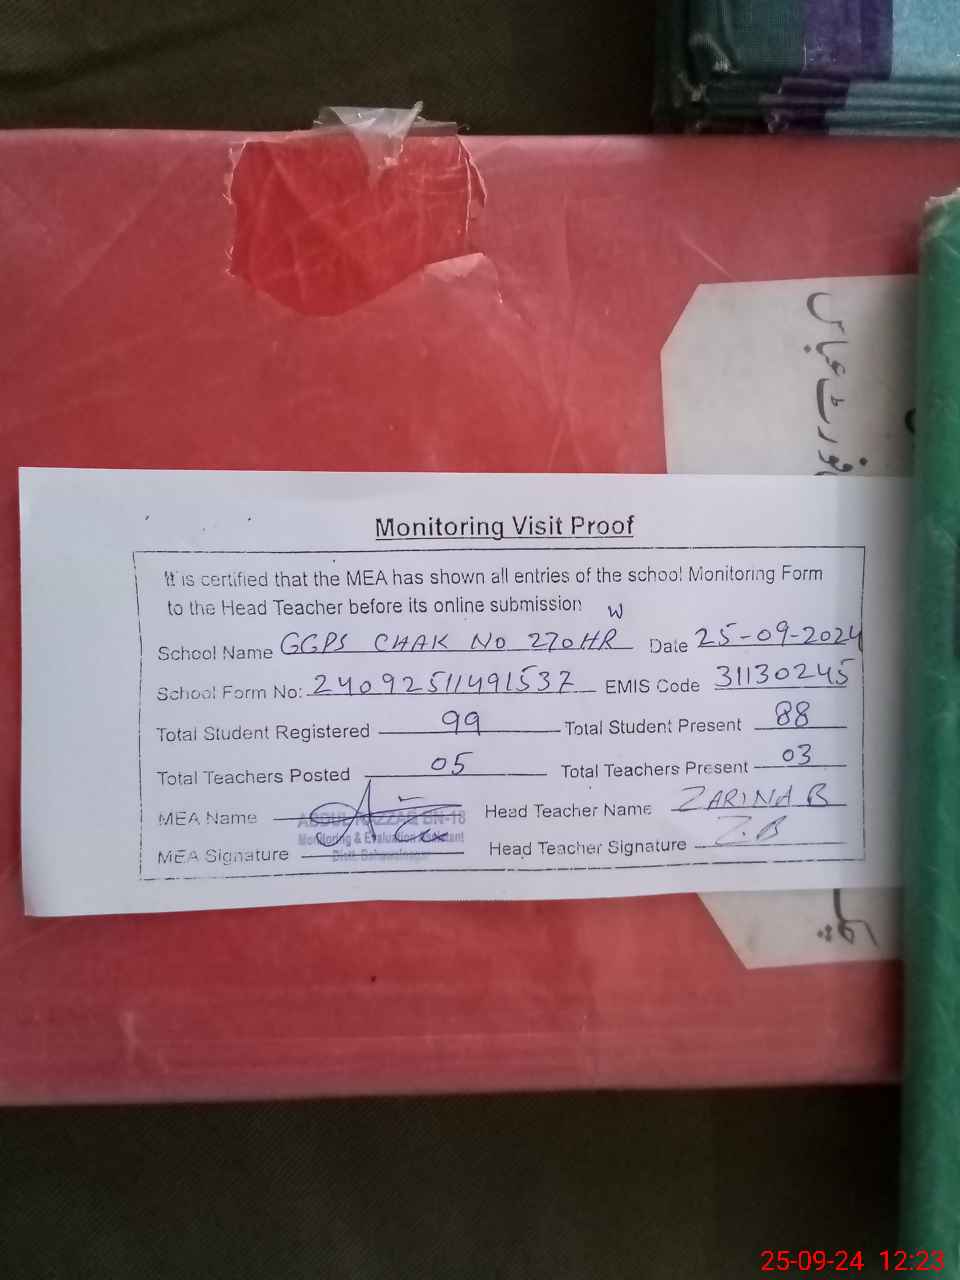 فورٹ عباس
Monitoring Visit Proof
It is certified that the MEA has shown all entries of the school Monitoring Form
to the Head Teacher before its online submission
W
School Name GGPS CHAK NO 270HR Date 25-09-2024
School Form No: 24092511491537 EMIS Code 31130245
Total Student Registered 99 Total Student Present 88
Total Teachers Posted 05 Total Teachers Present 03
MEA Name ABDUL RAZZAQ BN-18 Head Teacher Name ZARINA B
Monitoring & Evaluation Assistant
MEA Signature Distt. Bahawalnagar Head Teacher Signature Z.B
25-09-24 12:23